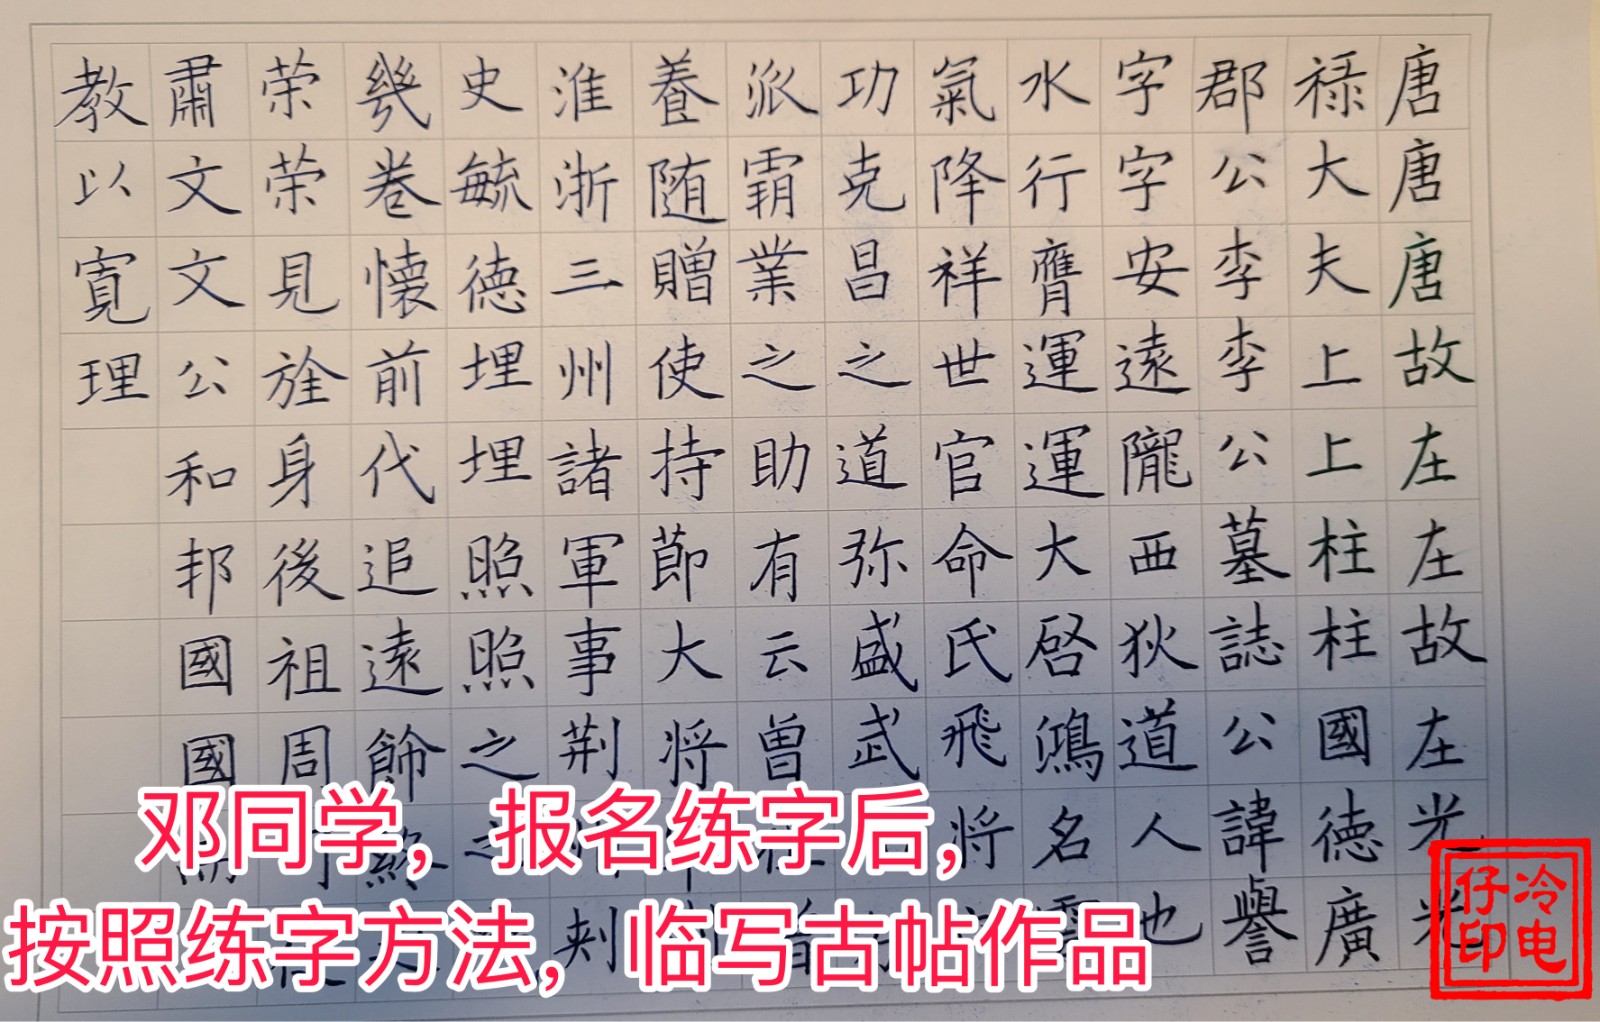 唐唐唐故左左故左光光
禄大夫上上柱柱國德廣
郡公李李公墓誌公諱譽
字字安遠隴西狄道人也
水行膺運運大啓鴻名
氣降祥世官命氏飛将
功克昌之道弥盛武
派霸業之助有云曽
養随贈使持節大将
淮浙三州諸軍事荆
史毓德埋埋照照之之
幾卷懐前代追遠飾終
荣荣見旌身後祖周
肅文文公和邦國國
教以寛理
邓同学，报名练字后，
按照练字方法，临写古帖作品
冷电仔印